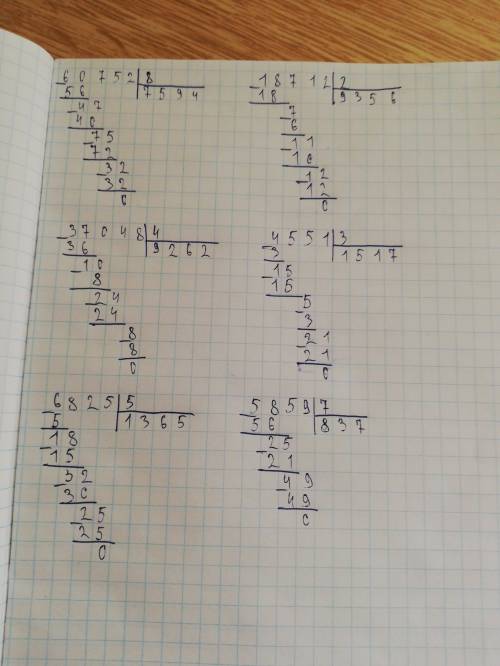 60752|8
-56 7594
-47
-40
-75
-72
-32
-32
0
-18712|2
18 9356
-7
6
-11
10
-12
12
0
-37048|4
36 9262
-10
8
-24
24
-8
8
0
-4551|3
3 1517
-15
15
-5
3
-21
21
0
-6825|5
5 1365
-18
15
-32
30
-25
25
0
-5859|7
56 837
-25
21
-49
49
0